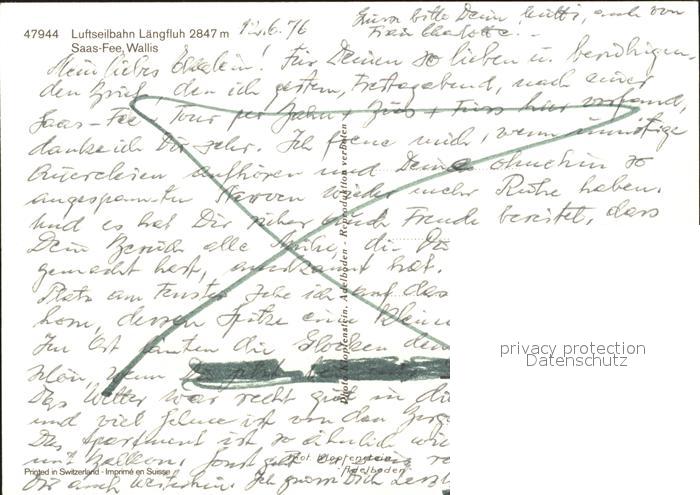 47944 Luftseilbahn Längfluh 2847 m
Saas-Fee, Wallis
12.6.76
bitte Deine Mutti, auch von
Frau Charlotte.
Mein liebes ! Für Deinen so lieben u. beruhigen-
den Brief, den ich gestern, Freitagabend, nach einer
Saas-Fee, Tour per Bahn, + Fuss hier vorfand,
danke ich Dir sehr. Ich freue mich, wenn unnötige
Quereleien aufhören und Deine ohnehin so
angespannten Nerven wieder mehr Ruhe haben.
Und es hat Dir sicher auch Freude bereitet, dass
Dein Besuch alle Mühe, die Du
gemacht hast, anerkannt hat.
Platz am Fenster sehe ich auf das
horn, dessen Spitze eine kleine
Im Ort läuten die Glocken den
schön, wenn
Das Wetter war recht gut in die
und viel Schnee ist von den
Das Apartment ist so ähnlich wie
mit Balkon. Sonst
Dir auch weiterhin. Ich
Photo Klopfenstein, Adelboden - Reproduktion verboten
Phot. Klopfenstein
Adelboden
Printed in Switzerland - Imprimé en Suisse
privacy protection
Datenschutz